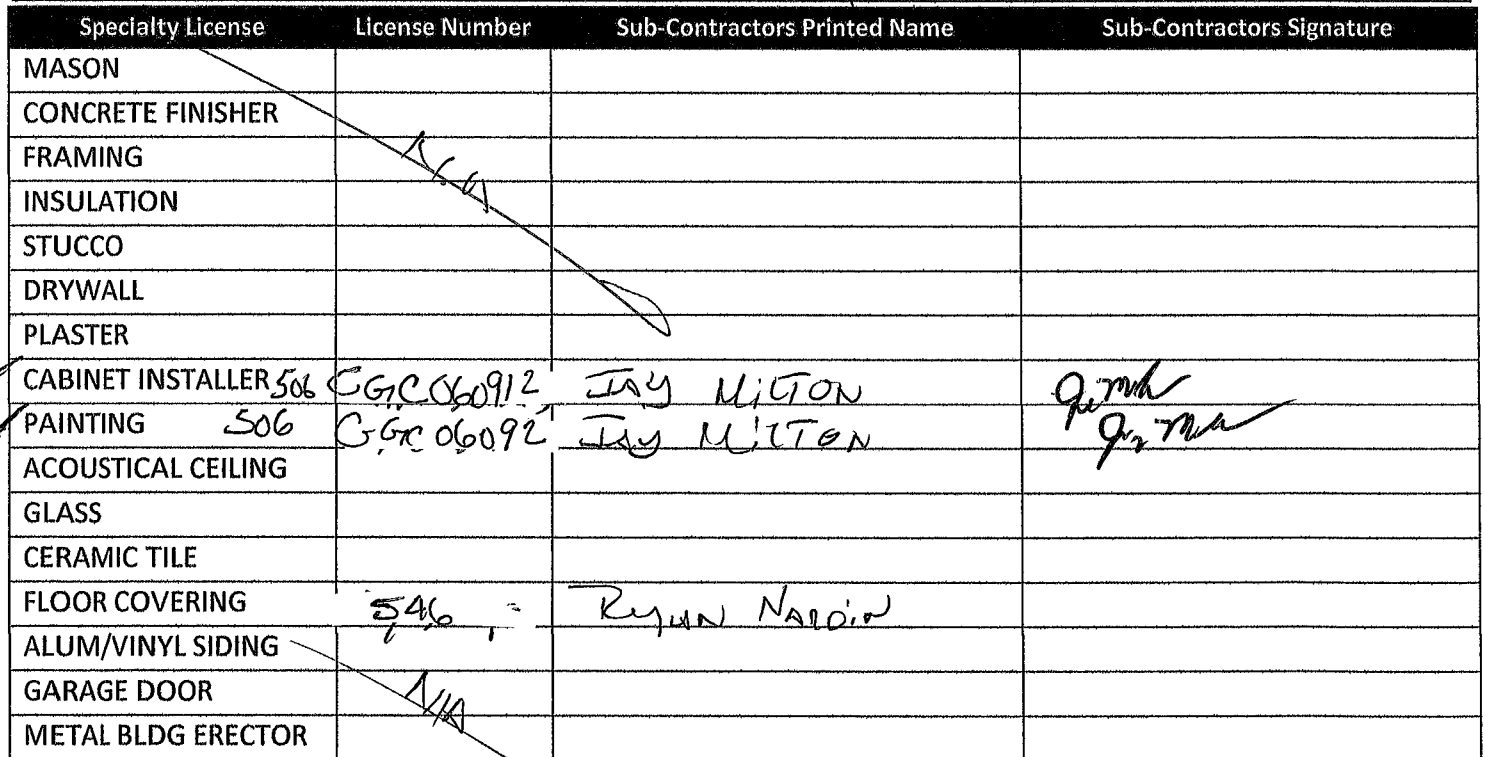 Specialty License License Number Sub-Contractors Printed Name Sub-Contractors Signature
MASON
CONCRETE FINISHER
FRAMING N/A
INSULATION
STUCCO
DRYWALL
PLASTER
CABINET INSTALLER 506 CGC060912 JAY MILTON
PAINTING 506 CGC06092 JAY MILTON
ACOUSTICAL CEILING
GLASS
CERAMIC TILE
FLOOR COVERING 546 RYAN NARDIN
ALUM/VINYL SIDING
GARAGE DOOR N/A
METAL BLDG ERECTOR